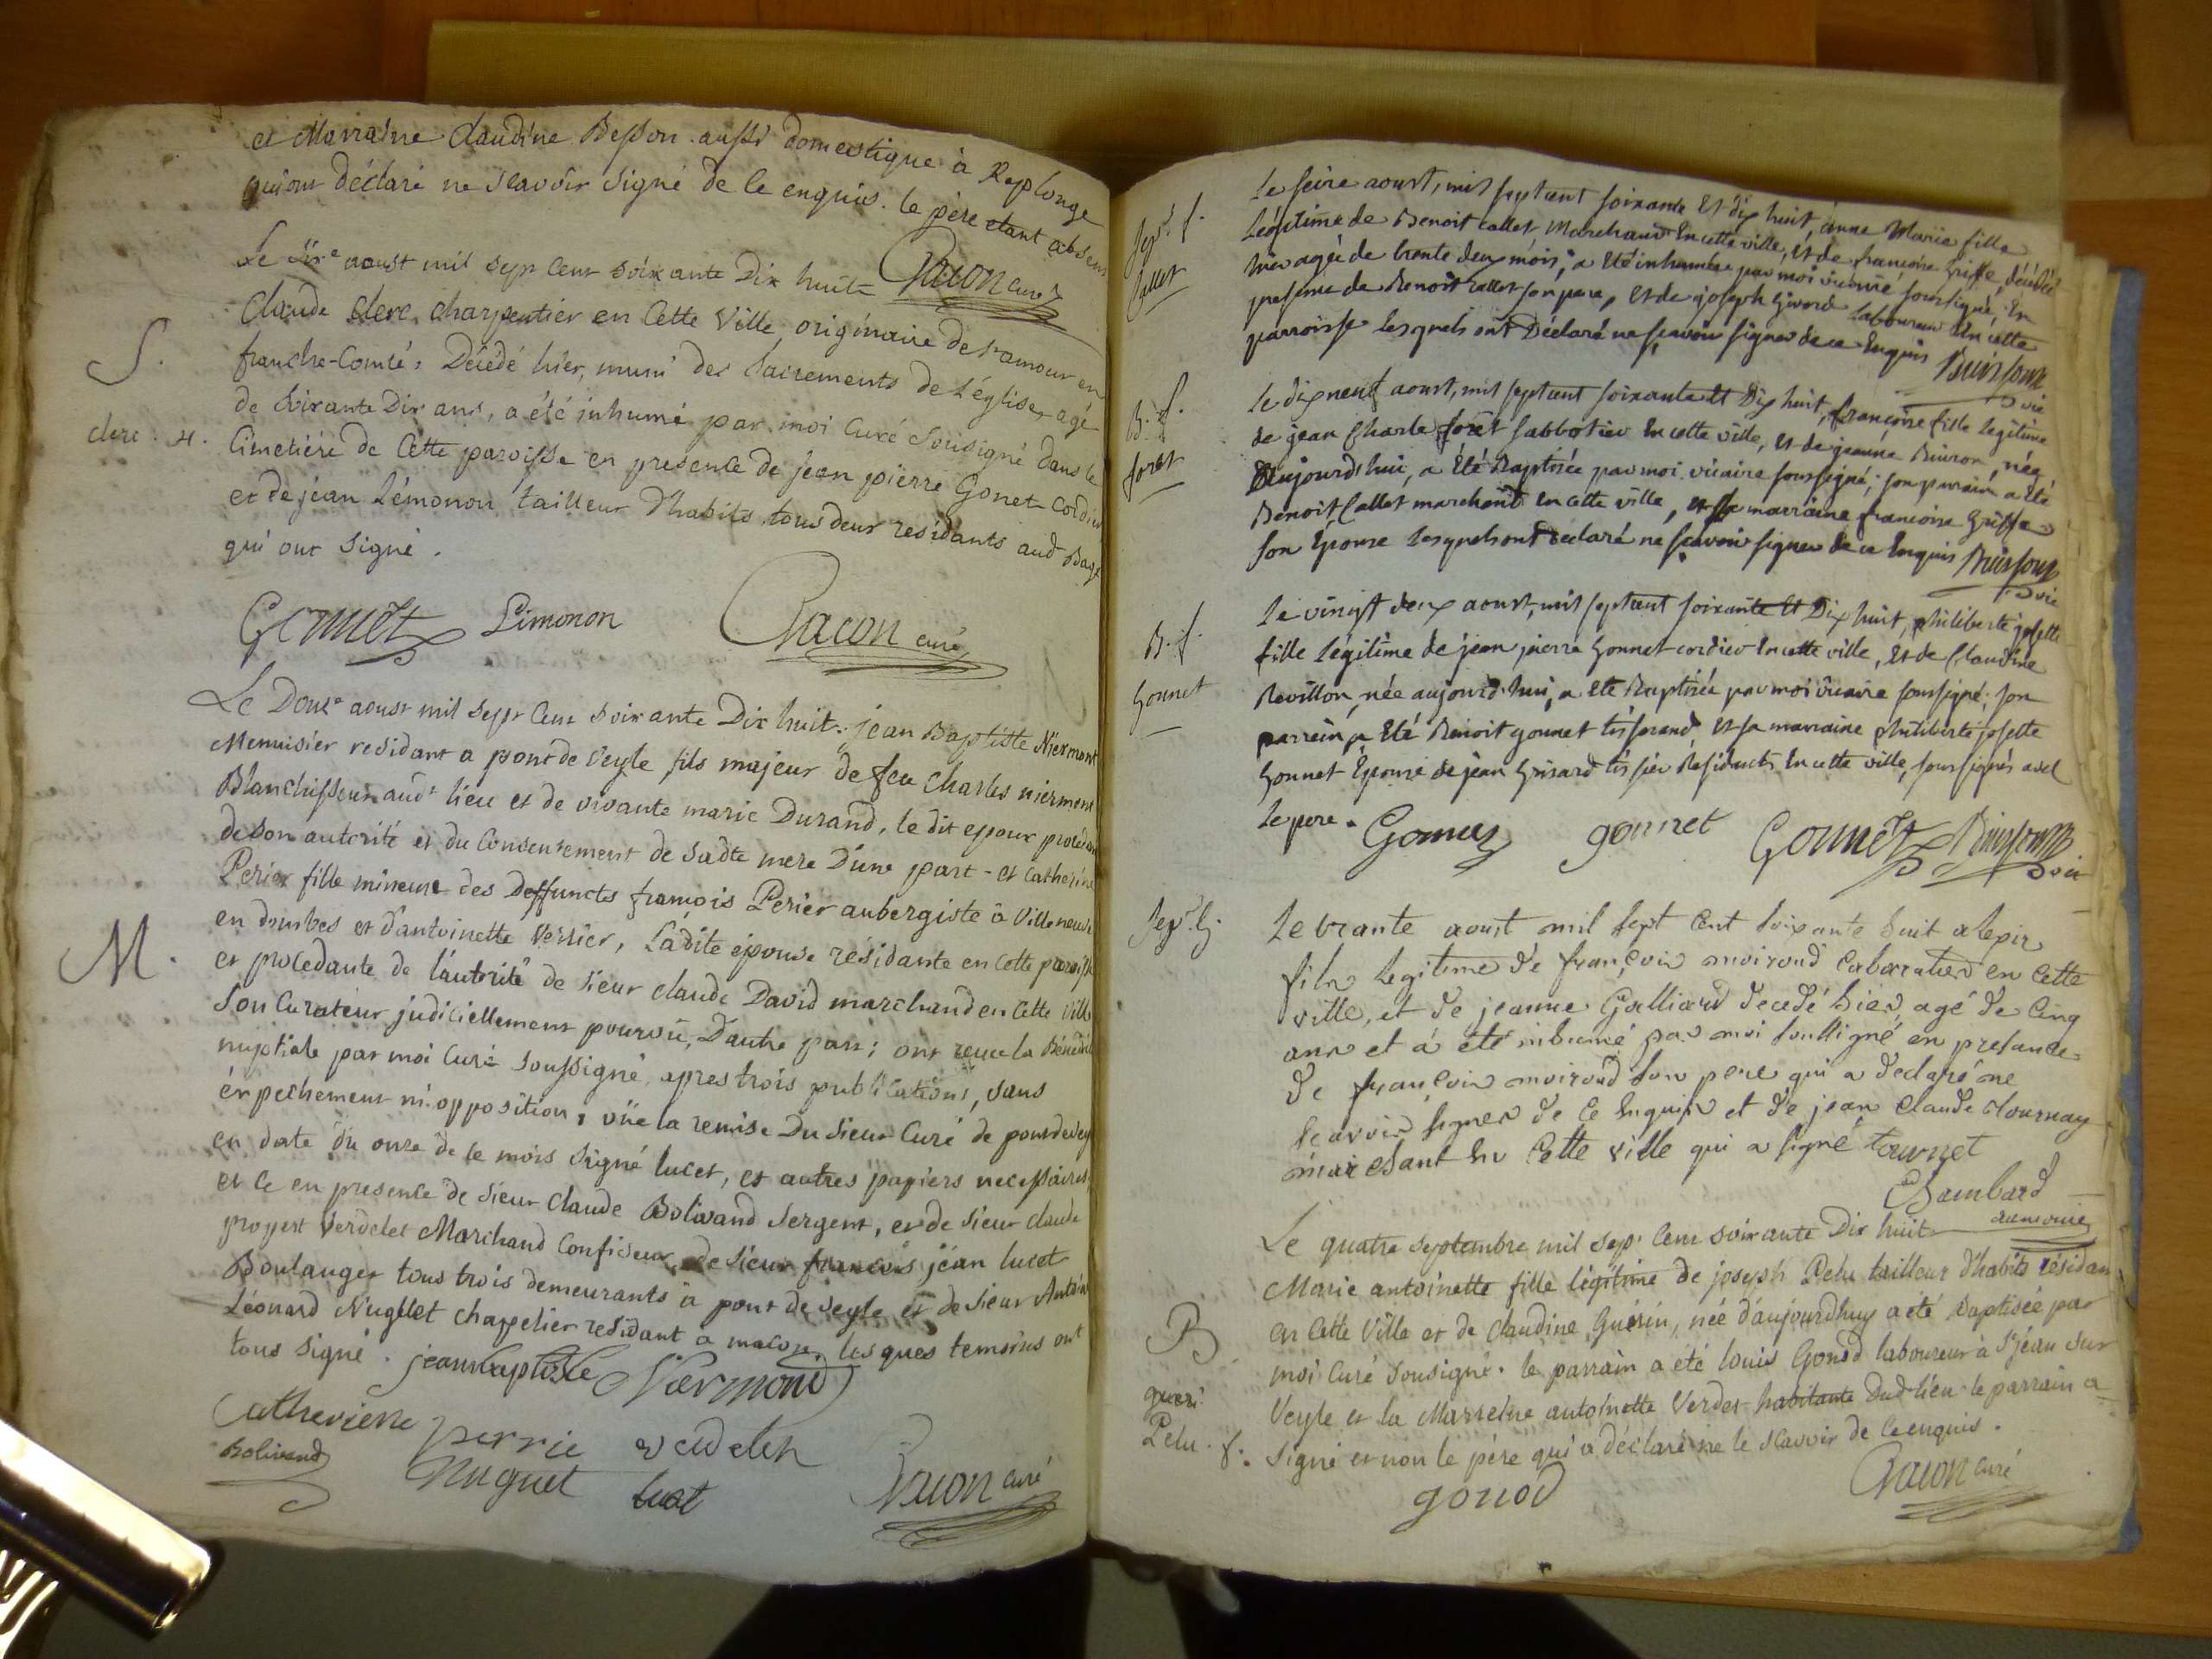 et Marraine claudine Besson aussi domestique à Replonge
qui ont déclaré ne scavoir signé de ce enquis. le père etant absent
Chacon curé
Le Sixe aoust mil sept cent soixante Dix huit
S.
clerc. H.
claude clerc charpentier en cette Ville originaire de st amour en
franche-Comté, Décédé hier, muni des Sacrements de L'église agé
de soixante Dix ans, a été inhumé par moi curé Sousigné dans le
Cimetiére de Cette paroisse en presence de jean pierre Gonet Cordier
et de jean Lémonon tailleur d'habits tous deux residants aud Bagé
qui ont signé.
Gonnet Limonon Chacon curé
Le Douze aoust mil sept cent soixante Dix huit. jean Baptiste Niermont
Menuisier residant a pont de veyle fils majeur de feu charles niermont
Blanchisseur audt lieu et de vivante marie Durand, le dit epoux procédant
de son autorité et du Consentement de sadte mere D'une part - et Catherine
Perier fille mineure des Deffuncts françois Perier aubergiste à Villeneuve
M.
en dombes et d'antoinette Verlier, Ladite épouse résidante en cette paroisse
et procedante de l'autorité de sieur claude David marchand en Cette Ville
son Curateur judiciellement pourvû, D'autre part; ont reçue la Bénédict
nuptiale par moi Curé soussigné, apres trois publications, sans
énpechement ni opposition; vüe la remise Du sieur Curé de pondeveyl
en date du onze de ce mois signé lucet, et autres papiers necessaires,
et ce en presence de sieur claude Bolivand Sergent, et de sieur claude
progest Verdelet Marchand Confiseur, de sieur francois jean lucet
Boulanger tous trois demeurants à pont de veyle et de sieur Antoine
Léonard Nugület chappelier residant a macon, les ques temoins ont
tous signé. jean baptiste Niermond
Catherienne perrie verdelet
Bolivand Nuguet lucet Chacon curé
Sepre. f.
Callet
Le seize aoust, mil septcent soixante Et dix huit, anne Marie fille
Légitime de Benoit callet Marchand En cette ville, et de francoise Griffe, décédée
hier agée de trente deux mois, a eté inhumée par moi vicaire soussigné, En
presence de Benoit callet son pere, Et de joseph Givord Laboureur En cette
parroisse lesquels ont Déclaré ne sçavoir signer de ce Enquis Buisson
vic
B. f.
foret
Le dix neuf aoust, mil septcent soixante Et Dix huit, françoise fille Legitime
de jean Charle foret sabbotier En cette ville, et de jeanne Buiron, née
Aujourd'hui, a Eté Baptisée par moi vicaire soussigné; son parrain a Eté
Benoit Callet marchand En cette ville, et sa marraine francoise Griffe
son Epouse lesquels ont déclaré ne sçavoir signer de ce Enquis Buisson
vic
B. f.
Gonnet
Le vingt deux aoust, mil septcent soixante Et Dix huit, philiberte josette
fille Légitime de jean pierre Gonnet cordier En cette ville, Et de Claudine
Revillon, née aujourd'hui, a Eté Baptisée par moi vicaire soussigné; son
parrein, a Eté Benoit gonnet tisserand, et sa marraine philiberte josette
Gonnet Epouse de jean Grisard tissier Résidants En cette ville, soussignés avec
Le pere. Gonnet gonnet Gonnet Buisson
vic
Sepre. G.
Le trante aoust mil sept Cent soixante huit alexis
fils Legitime de françois moiroud Cabaratier en Cette
ville, et de jeanne Galliard decedé hier, agé de Cinq
ans et a été inhumé par moi soussigné en presance
de françois moiroud son pere qui a declaré ne
sçavoir signer de Ce Enquis et de jean Claude Tournay
marchant En Cette ville qui a signé tournet
Chambard
Le quatre septembre mil sept Cent soixante Dix huit
B
gueri
Pelu. f.
Marie antoinette fille légitime de joseph Pelu tailleur d'habits résidan
en Cette Ville et de claudine Guérin, née d'aujourdhuy a eté Baptisée par
moi Curé Sousigné. le parrain a été louis Gonod laboureur à st jean sur
Veyle et la Marreine antoinette Verdet habitante Dud lieu le parrain a
signé et non le père qui a déclaré ne le scavoir de ce enquis.
gonod Chacon curé